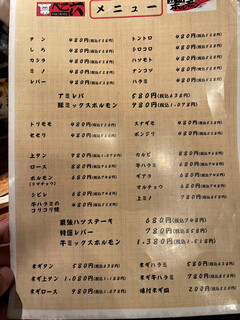 メニュー
タン 480円(税込528円) トントロ 480円(税込528円)
しろ 480円(税込528円) トロコロ 480円(税込528円)
カシラ 480円(税込528円) ハツモト 480円(税込528円)
ミノ 480円(税込528円) ナンコツ 480円(税込528円)
レバー 480円(税込528円) ハラミ 480円(税込528円)
アミレバ 580円(税込638円)
豚ミックスホルモン 980円(税込1.078円)
トリモモ 480円(税込528円) スナギモ 480円(税込528円)
セセリ 480円(税込528円) ボンジリ 480円(税込528円)
上タン 980円(税込1.078円) カルビ 680円(税込748円)
ロース 880円(税込968円) 牛ハラミ 680円(税込748円)
ホルモン 680円(税込748円) ギアラ 680円(税込748円)
(コマチョウ) マルチョウ 680円(税込748円)
シビレ 680円(税込748円) 上ミノ
牛ハラミの
コリコリ焼
最強ハツステーキ 680円(税込748円)
特選レバー 680円(税込748円)
牛ミックスホルモン 1.380円(税込1.518円)
ネギタン 580円(税込638円) ネギハラミ 580円(税込638円)
ネギ上タン 1.080円(税込1.188円) ネギ牛ハラミ 780円(税込858円)
ネギロース 980円(税込1.078円) 味付ネギ皿 200円(税込220円)